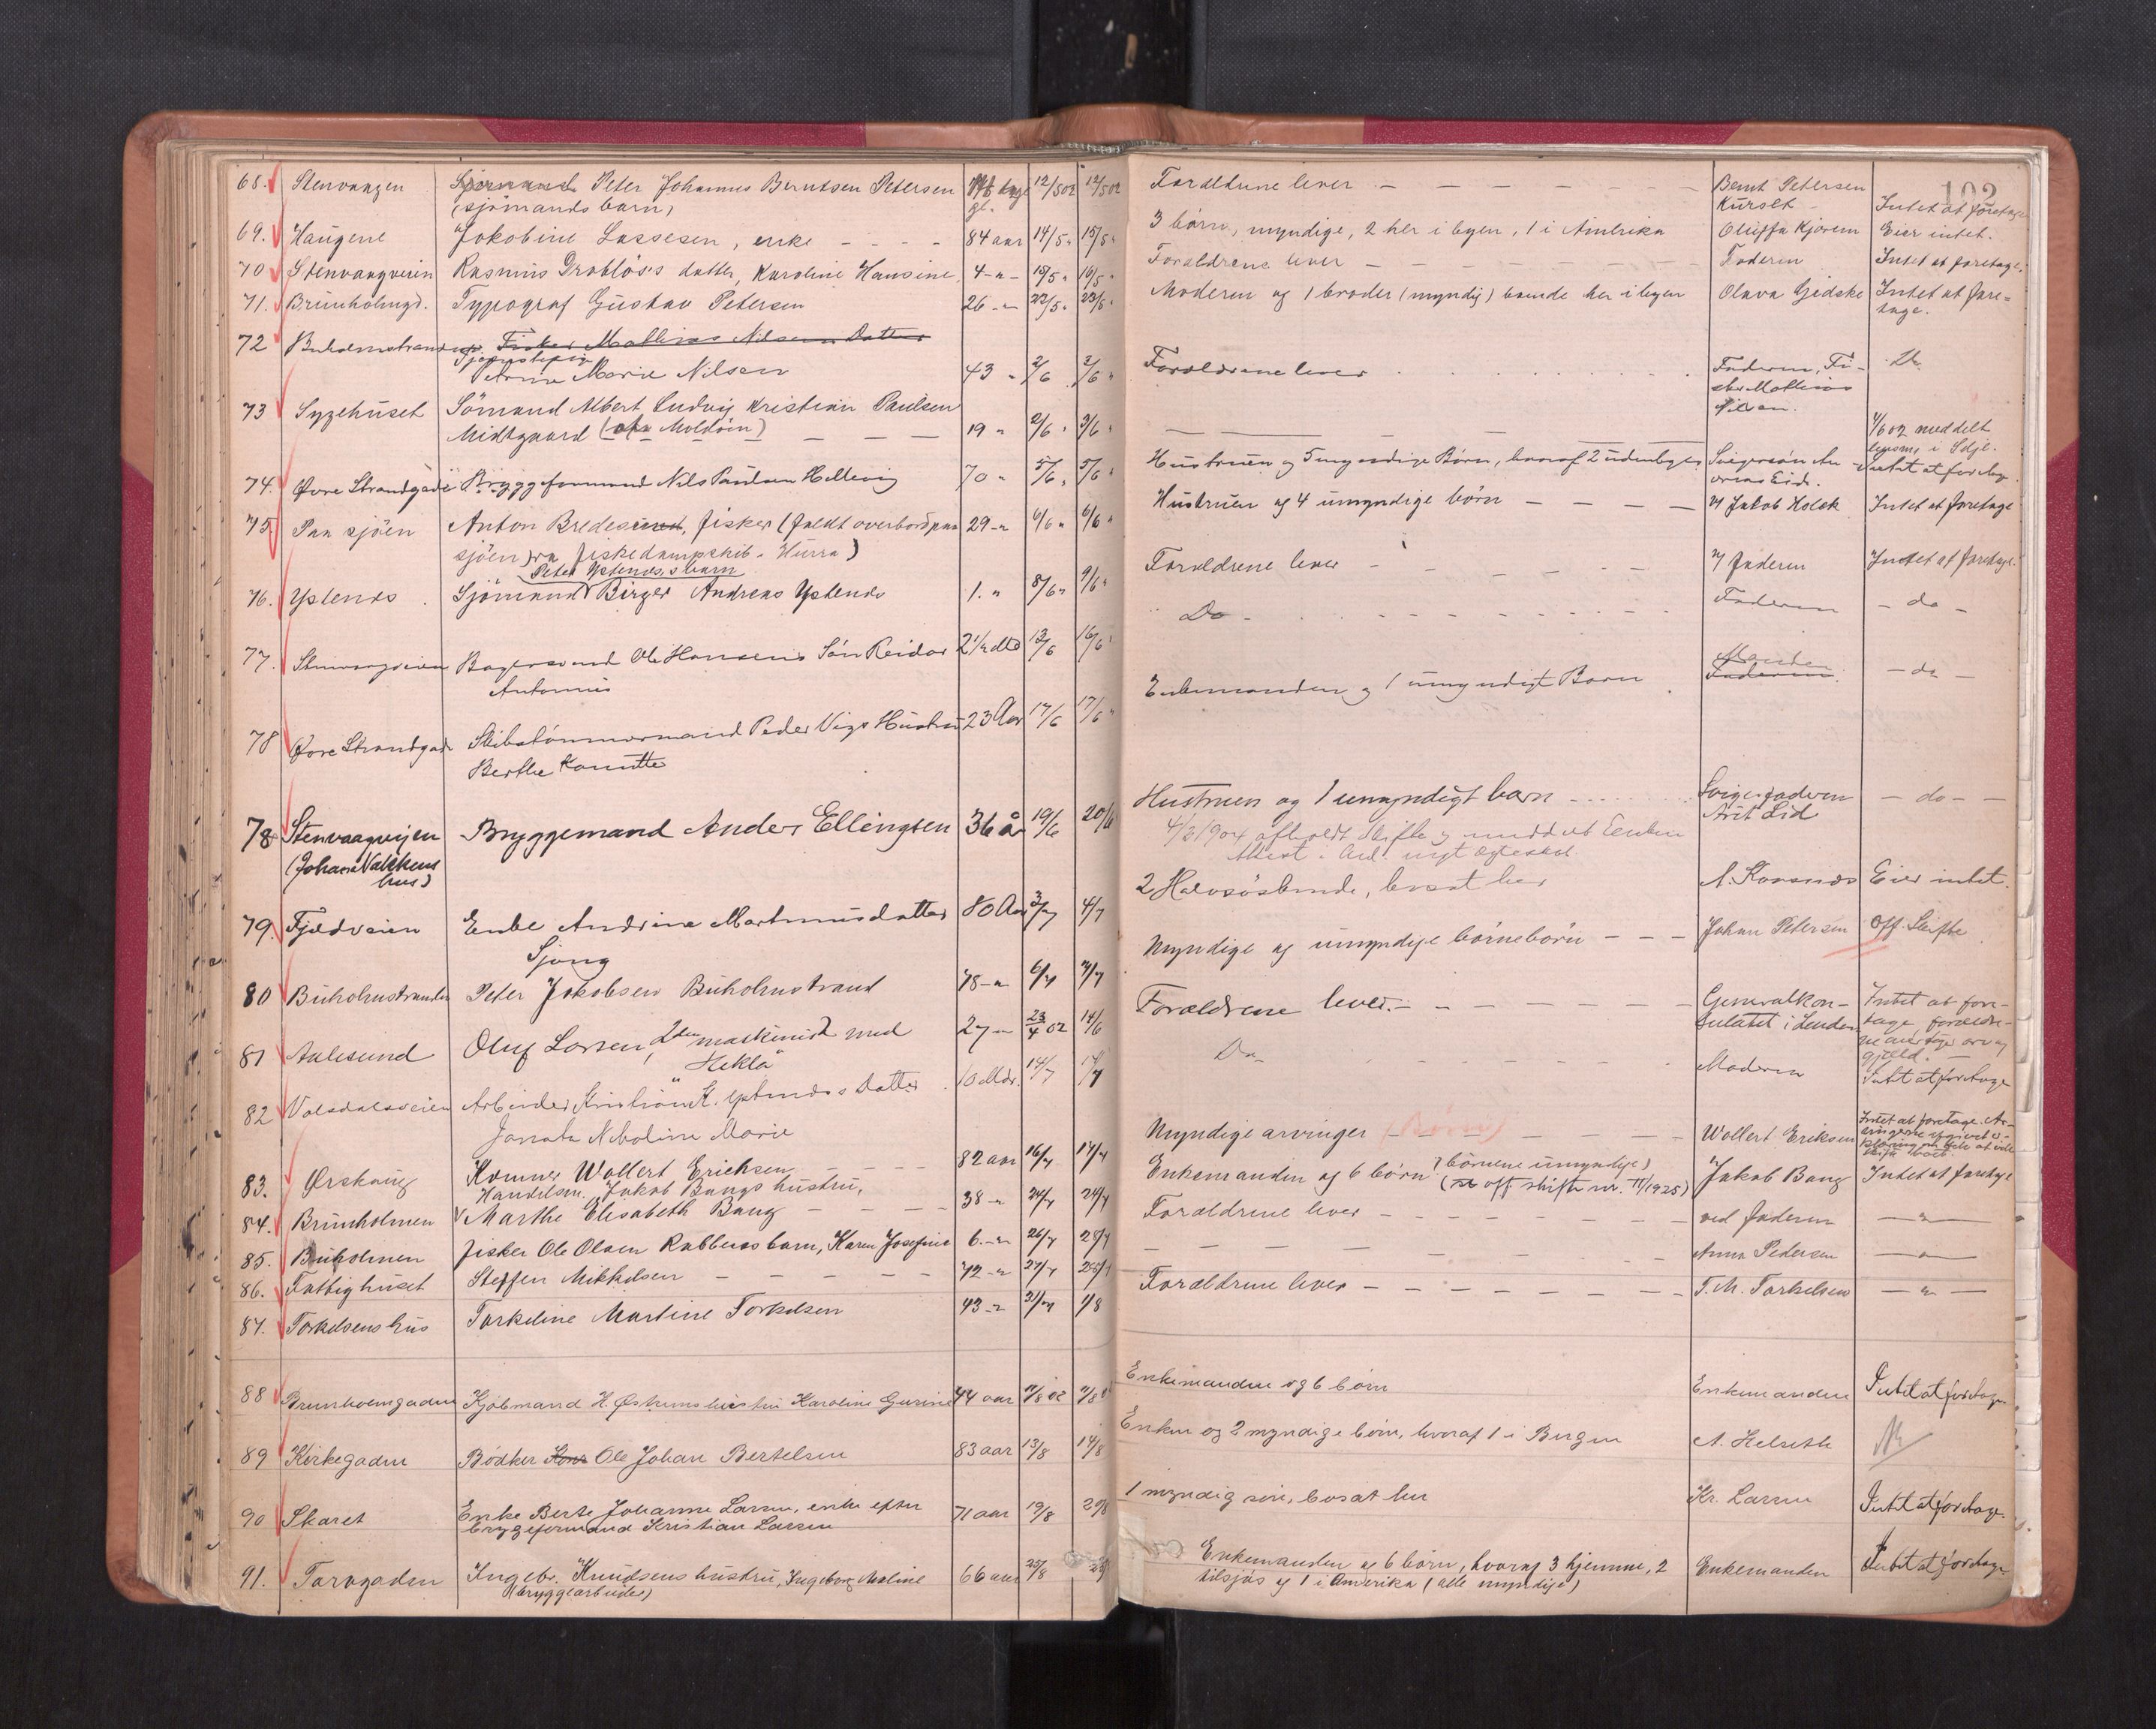 102
68. Stenvaagen Sjømand Peter Johannes Berntsen Petersen 12/5 02 12/5 02 Forældrene lever Bernt Petersen
(sjömands barn) gl. Kurset Intet at foretage
69. Haugene Jakobine Lassesen, enke 84 aar 14/5 " 15/5 " 3 börn, myndige, 2 her i byen, 1 i Amerika Oluffa Kjorem Eier intet.
70 Stenvaagveien Rasmus Drabløs's datter, Karoline Hansine 4 -"- 15/5 " 16/5 " Forældrene lever Faderen Intet at foretage.
71. Brunholmgd. Typograf Gustav Petersen 26 -"- 22/5 " 23/5 " Moderen og 1 broder (myndig) boende her i byen Olava Gjedske Intet at fore=
tage.
72 Buholmstranden Fisker Mathias Nilsens Datter
Tjenestepige
Anna Marie Nilsen 43 " 2/6 3/6 " Forældrene lever Faderen, Fi-
sker Mathias
Nilsen.
73 Sygehuset Sömand Albert Ludvig Kristian Paulsen
Midtgaard (af Moldöen) 19 " 2/6 " 3/6 " 4/6 02 meddelt
lensm. i Sdjl.
74. Øvre Strandgade Bryggeformand Nils Paulsen Hellevig 70 " 5/6 " 5/6 " Hustruen og 5 myndige Börn, hvoraf 2 udenbyes Svigersön An-
dreas Eid. Intet at foretag
75. Paa sjöen Anton Bredesen, fisker (faldt overbord paa 29 -"- 6/6 " 6/6 " Hustruen og 4 umyndige börn v/ Jakob Holsk Intet at foretage
sjöen fra fiskedampskib "Hurra")
Peter Ystenes's barn
76. Ystenes Sjömand Birger Andreas Ystenes 1. " 8/6 " 9/6 " Forældrene lever v/ faderen Intet at foretage.
77. Stenvaagveien Bagersvend Ole Hansens Sön Reidar 2 1/2 Mdr 13/6 16/6 " Do Faderen - do -
Antonius
78 Øvre Strandgade Skibstömmermand Peder Vigs Hustru 23 Aar 17/6 17/6 " Enkemanden og 1 umyndigt Barn Manden Faderen - do -
Berthe
78 Stenvaagveien Bryggemand Anders Ellingsen 36 år 19/6 20/6 Hustruen og 1 umyndigt barn Svigerfaderen - do -
Arit Lid
(Johan Valkens hus) 4/3 1904 afholdt Skifte og meddelt Enken
Attest i Anl. nyt Egteskab
79. Fjeldveien Enke Andrine Martinusdatter 80 Aar 3/7 4/7 2 Halvsöskende, bosat her A. Korsnæs Eier intet.
Sjong
80 Buholmstranden Peter Jakobsen Buholmstrand 78 -"- 6/7 7/7 Myndige og umyndige börnebörn Johan Petersen Off. Skifte
81 Aalesund Oluf Larsen, 2den maskinist med 27 -"- 23/4 02 14/6 Forældrene lever. Generalkon-
sulatet i London Intet at fore-
tage, forældre-
ne overtager arv og
gjæld.
"Hekla"
82 Volsdalsveien Arbeider Kristian K. Ystenæs Datter 10 Mdr. 14/7 17/7 Do Moderen Intet at foretage
Janata Nikoline Marie
83. Ørskoug Kræmer Wollert Erichsen 82 aar 16/7 17/7 Myndige arvinger (Börn) Wollert Eriksen Intet at foretage.
84. Brunholmen Handelsm. Jakob Bangs hustru,
Marthe Elisabeth Bang 38 -"- 24/7 24/7 Enkemanden og 6 börn (börnene umyndige)
(se off skifte nr. 11/1925) Jakob Bang Intet at foretage
85. Buholmen Fisker Ole Olsen Rabbens barn, Karen Josefine 6. -"- 26/7 28/7 Forældrene lever ved faderen - " -
86. Fattighuset Steffen Mikkelsen 72 -"- 27/7 28/7 Anna Pedersen - " -
87. Torkelsens hus Torkeline Martine Torkelsen 43 -"- 31/7 1/8 Forældrene lever T. M. Torkelsen - " -
88 Brunholmgaden Kjöbmand H. Østrems hustru Karoline Gurine 44 aar 7/8 02 7/8 Enkemanden og 6 börn Enkemanden Intet at foretage
89 Kirkegaden Bødker Ole Johan Bertelsen 83 aar 13/8 14/8 Enken og 2 myndige börn, hvoraf 1 i Bergen A. Helseth
90 Skaret Enke Berte Johanne Larsen, enke efter 71 aar 19/8 20/8 1 myndig sön, bosat her Kr. Larsen Intet at foretage.
bryggeformand Kristian Larsen
91. Torvgaden Ingebr. Knudsens hustru, Ingeborg Maline 66 aar 25/8 Enkemanden og 6 börn, hvoraf 3 hjemme, 2 Enkemanden Intet at foretage
(bryggearbeider) tilsjös og 1 i Amerika (alle myndige)